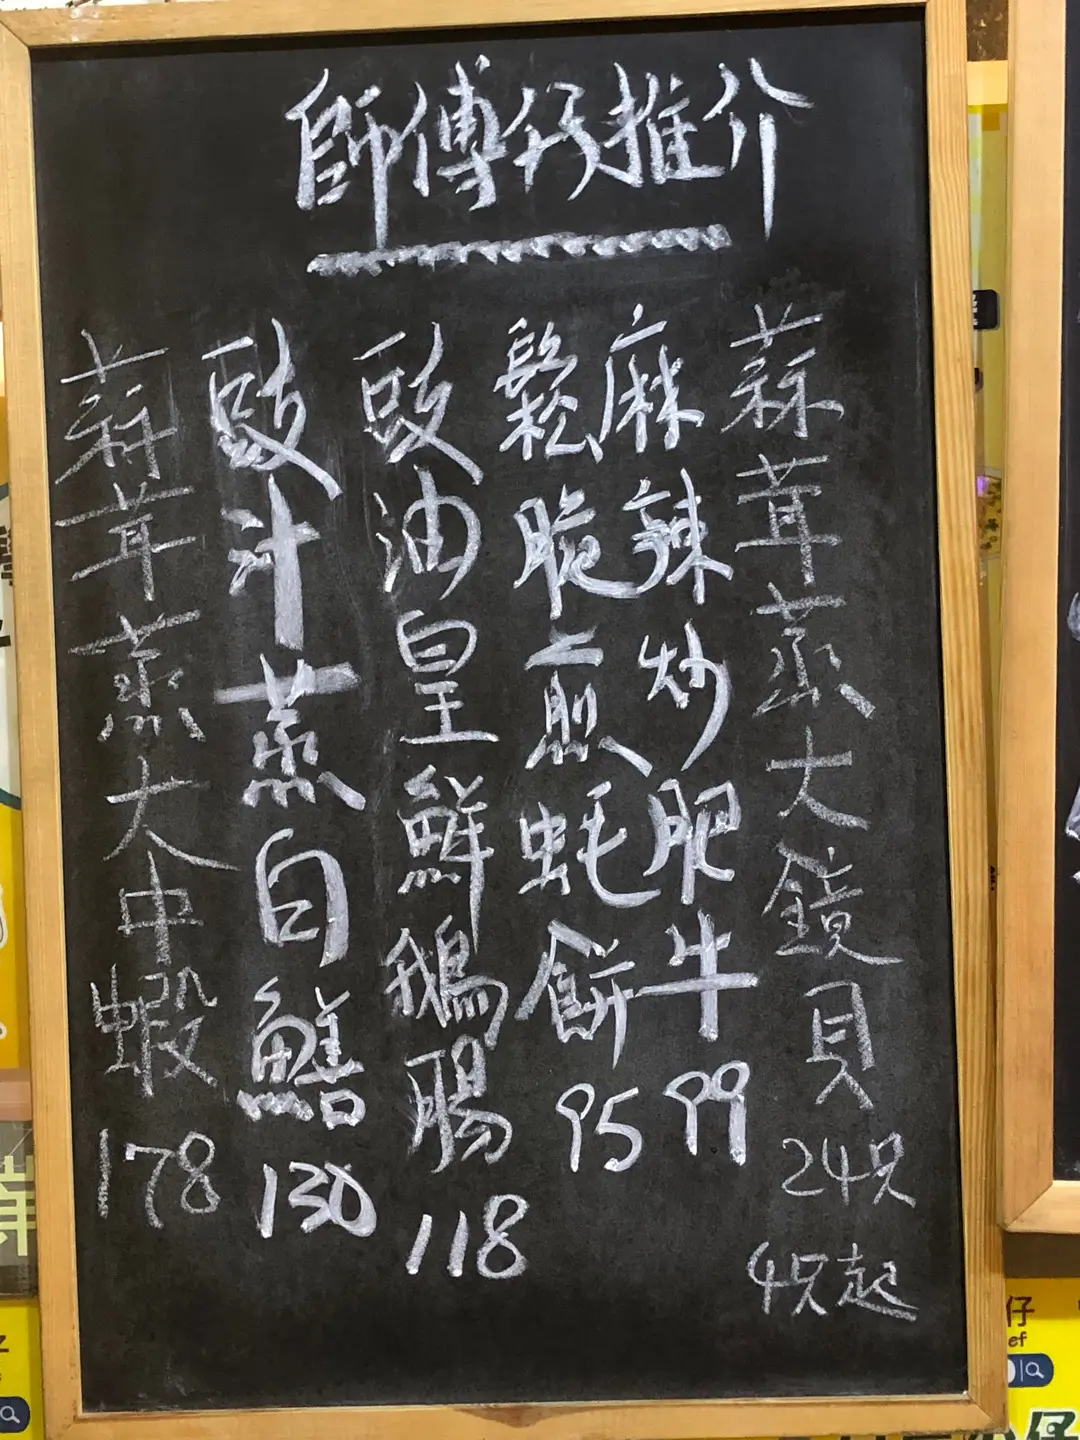 師傅仔推介
蒜茸蒸大鏡貝 24只 4只起
麻辣炒肥牛 99
鬆脆煎蚝餅 95
豉油皇鮮鵝腸 118
豉汁蒸白鱔 130
蒜茸蒸大中蝦 178
仔
ef